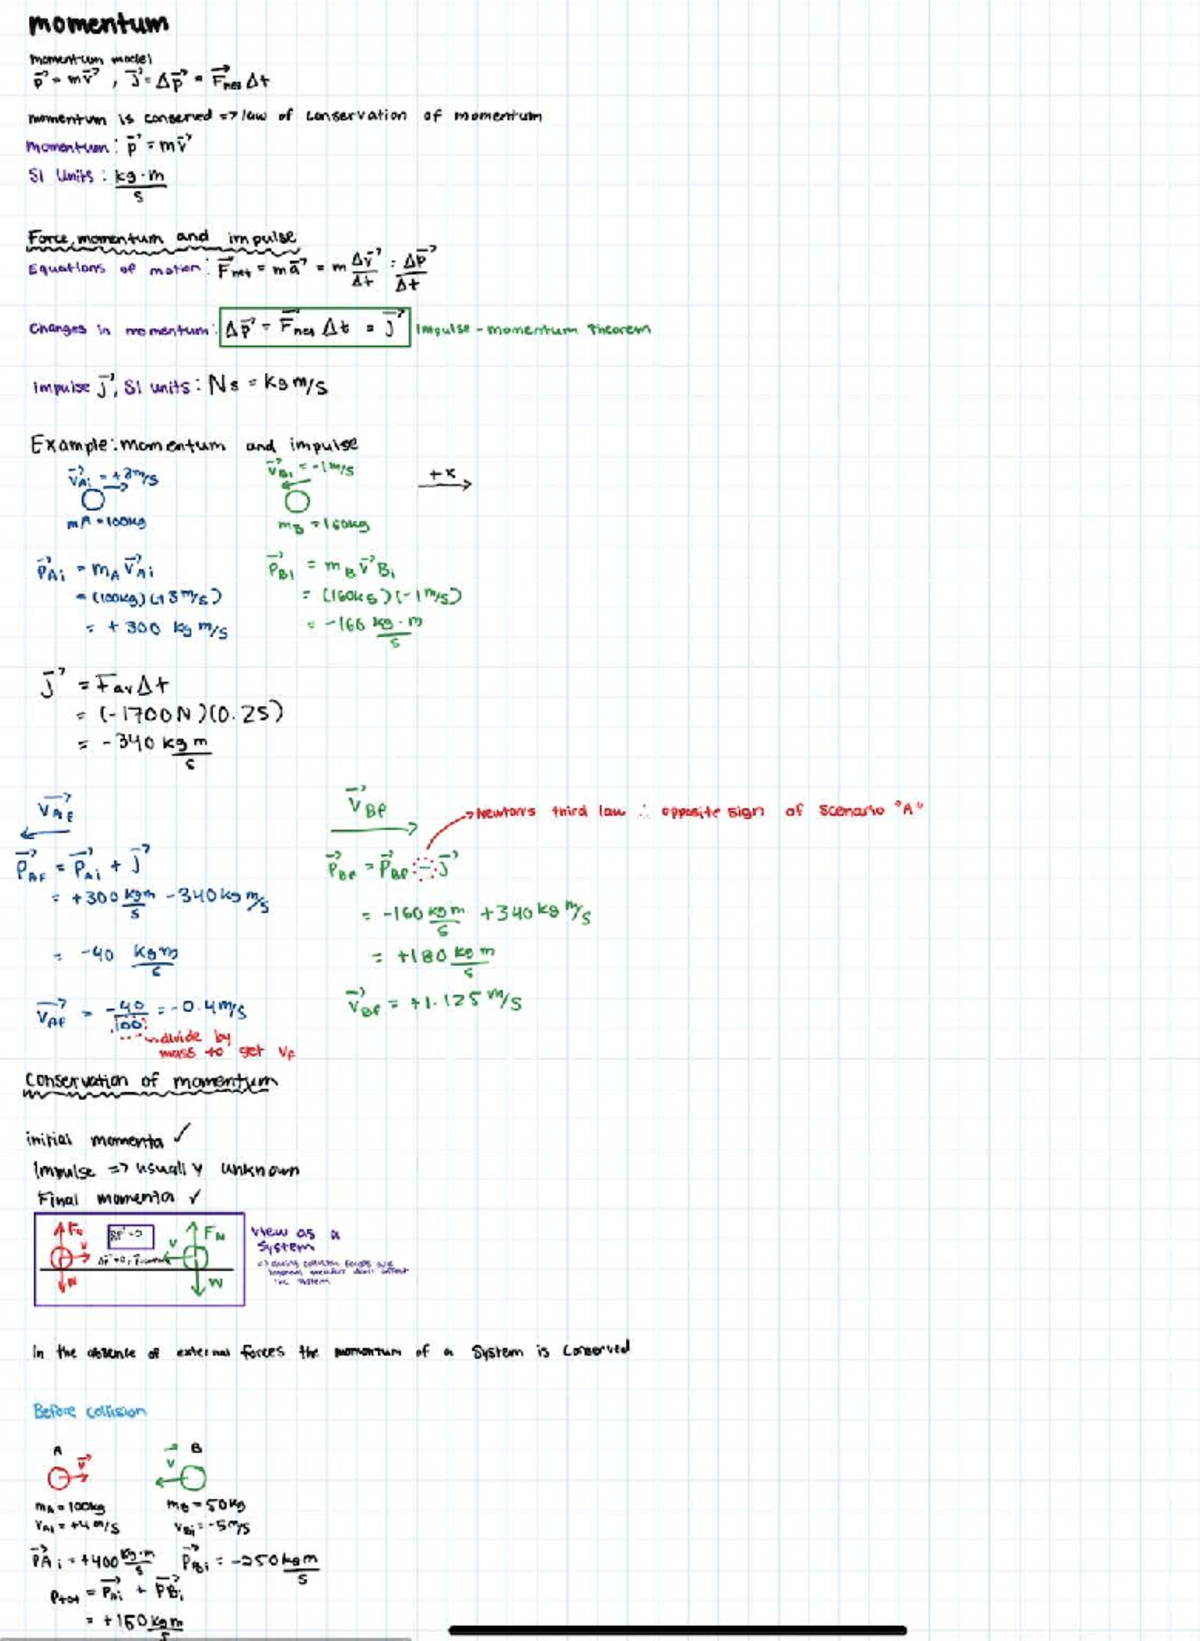 momentum
momentum model
p⃗ = mv⃗ , J⃗ = Δp⃗ = F⃗nes Δt
momentum is conserved => law of conservation of momentum
Momentum: p⃗ = mv⃗
SI Units: kg·m/s
Force, momentum and impulse
Equations of motion: F⃗net = ma⃗ = m Δv⃗/Δt = Δp⃗/Δt
Changes in momentum: Δp⃗ = F⃗nes Δt = J⃗ Impulse-momentum theorem
Impulse J⃗, SI units: Ns = kgm/s
Example: momentum and impulse
v⃗Ai = +3m/s v⃗Bi = -1m/s +x
mA = 100kg mB = 160kg
p⃗Ai = mA v⃗Ai p⃗Bi = mB v⃗Bi
= (100kg)(+3m/s) = (160kg)(-1m/s)
= +300 kgm/s = -160 kg·m/s
J⃗ = Fav Δt
= (-1700N)(0.2s)
= -340 kgm/s
v⃗Af v⃗Bf Newton's third law ∴ opposite sign of scenario "A"
p⃗Af = p⃗Ai + J⃗ p⃗Bf = p⃗Bf - J⃗
= +300 kgm/s - 340kgm/s = -160 kgm/s + 340kgm/s
= -40 kgm/s = +180 kgm/s
v⃗Af = -40/100 = -0.4m/s v⃗Bf = +1.125m/s
divide by
mass to get vf
Conservation of momentum
initial momenta ✓
Impulse => usually unknown
Final momenta ✓
FN v v FN View as a
System
W W
In the absence of external forces the momentum of a System is conserved
Before collision
A B
v⃗ v⃗
mA = 100kg mB = 50kg
vAi = +4m/s vBi = -5m/s
p⃗Ai = +400 kg·m/s p⃗Bi = -250 kgm/s
ptot = p⃗Ai + p⃗Bi
= +150 kgm/s